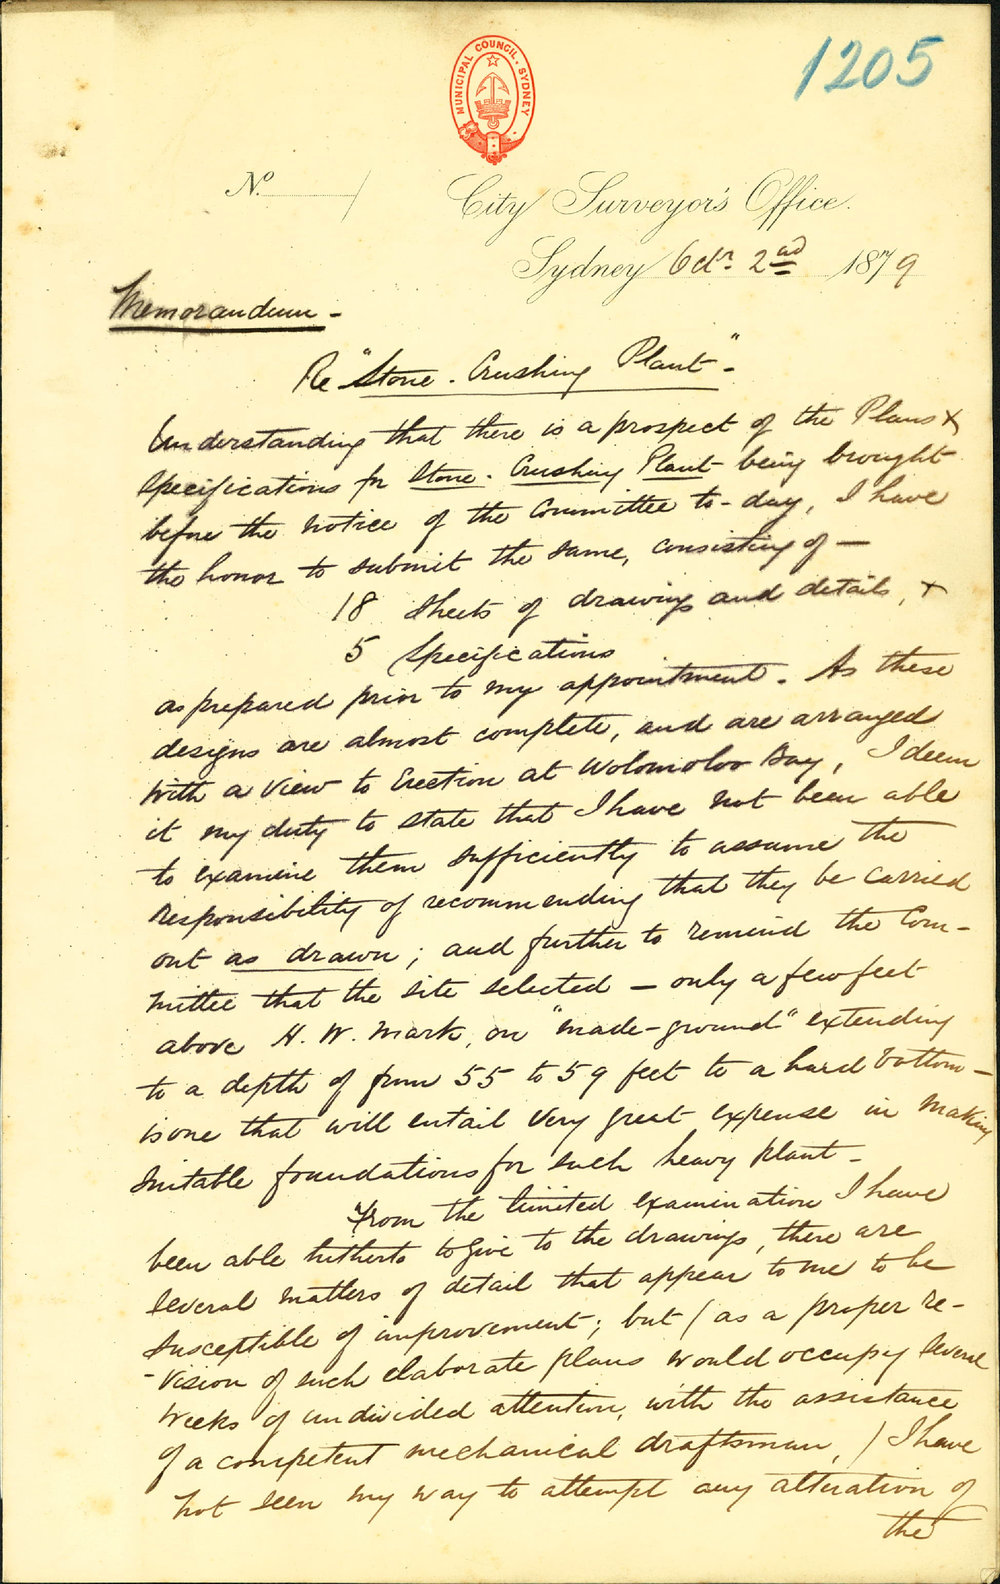 1205
MUNICIPAL COUNCIL. SYDNEY
No. /
City Surveyor's Office.
Sydney Octr. 2nd 1879
Memorandum -
Re "Stone-Crushing Plant" -
Understanding that there is a prospect of the Plans &
Specifications for Stone-Crushing Plant being brought
before the notice of the Committee to-day, I have
the honor to submit the same, consisting of —
18 Sheets of drawings and details, &
5 Specifications
as prepared prior to my appointment. As these
designs are almost complete, and are arranged
with a view to Erection at Wolomoloo Bay, I deem
it my duty to state that I have not been able
to examine them sufficiently to assume the
responsibility of recommending that they be carried
out as drawn; and further to remind the Com-
mittee that the site selected — only a few feet
above H. W. Mark, on "made-ground" extending
to a depth of from 55 to 59 feet to a hard bottom —
is one that will entail very great expense in making
suitable foundations for such heavy plant —
From the limited examination I have
been able hitherto to give to the drawings, there are
several matters of detail that appear to me to be
susceptible of improvement; but (as a proper re-
-vision of such elaborate plans would occupy several
weeks of undivided attention, with the assistance
of a competent mechanical draftsman,) I have
not seen my way to attempt any alteration of
the